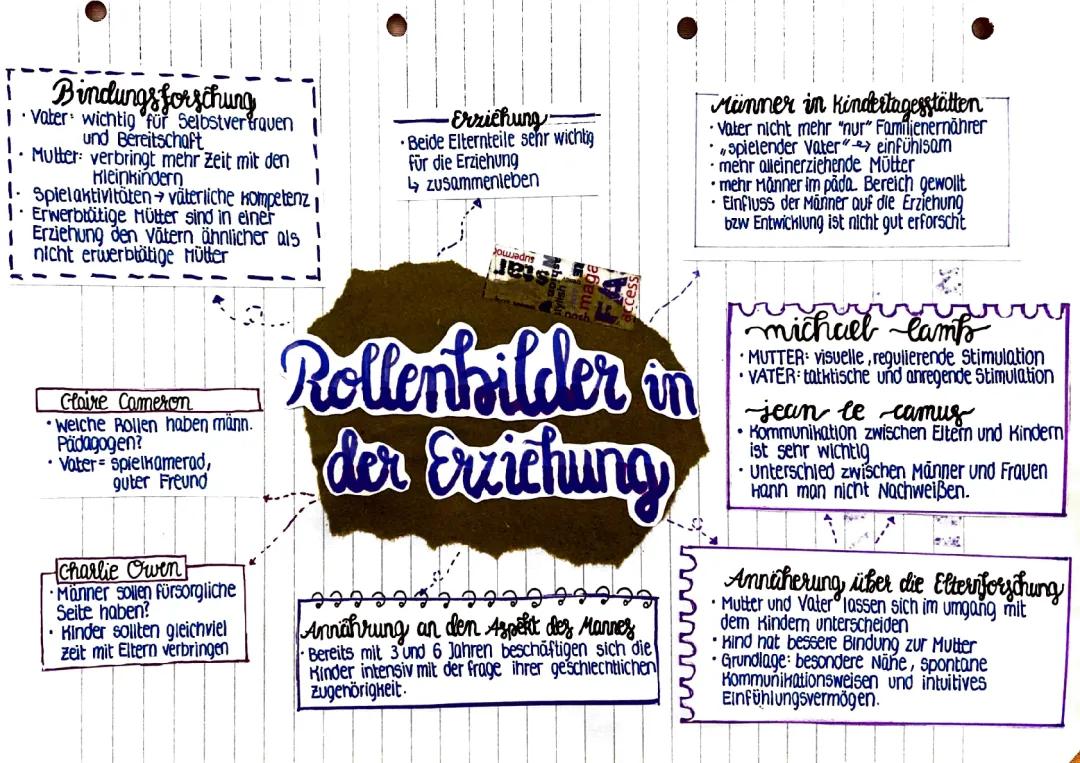 Bindungsforschung
· Vater: wichtig für Selbstvertrauen
und Bereitschaft
· Mutter: verbringt mehr Zeit mit den
Kleinkindern
· Spielaktivitäten → väterliche Kompetenz
· Erwerbtätige Mütter sind in einer
Erziehung den Vätern ähnlicher als
nicht erwerbtätige Mütter
Erziehung
· Beide Elternteile sehr wichtig
für die Erziehung
↳ zusammenleben
Männer in Kindertagesstätten
· Vater nicht mehr "nur" Familienernährer
· „spielender Vater" → einfühlsam
· mehr alleinerziehende Mütter
· mehr Männer im päda. Bereich gewollt
· Einfluss der Männer auf die Erziehung
bzw Entwicklung ist nicht gut erforscht
supermo
maga
FA
access
Rollenbilder in
der Erziehung
michael lamb
· MUTTER: visuelle, regulierende Stimulation
· VATER: taktische und anregende Stimulation
jean le camus
· Kommunikation zwischen Eltern und Kindern
ist sehr wichtig
· unterschied zwischen Männer und Frauen
kann man nicht Nachweißen.
Claire Cameron
· Welche Rollen haben männ.
Pädagogen?
· Vater = Spielkamerad,
guter Freund
Charlie Owen
· Männer sollen fürsorgliche
Seite haben?
· Kinder sollten gleichviel
zeit mit Eltern verbringen
Annährung an den Aspekt des Mannes
· Bereits mit 3 und 6 Jahren beschäftigen sich die
Kinder intensiv mit der frage ihrer geschlechtlichen
zugehörigkeit.
Annäherung über die Elternforschung
· Mutter und Vater lassen sich im umgang mit
dem Kindern unterscheiden
· Kind hat bessere Bindung zur Mutter
· Grundlage: besondere Nähe, spontane
Kommunikationsweisen und intuitives
Einfühlungsvermögen.